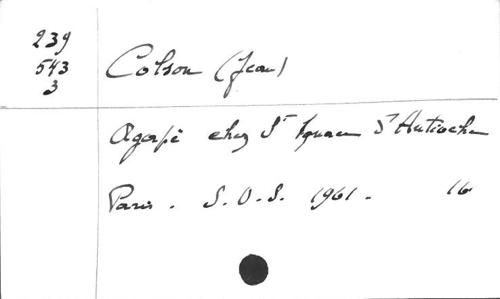 239
543
3
Colson (Jean)
Agapè chez St Ignace d'Antioche
Paris. S.O.S. 1961. 16